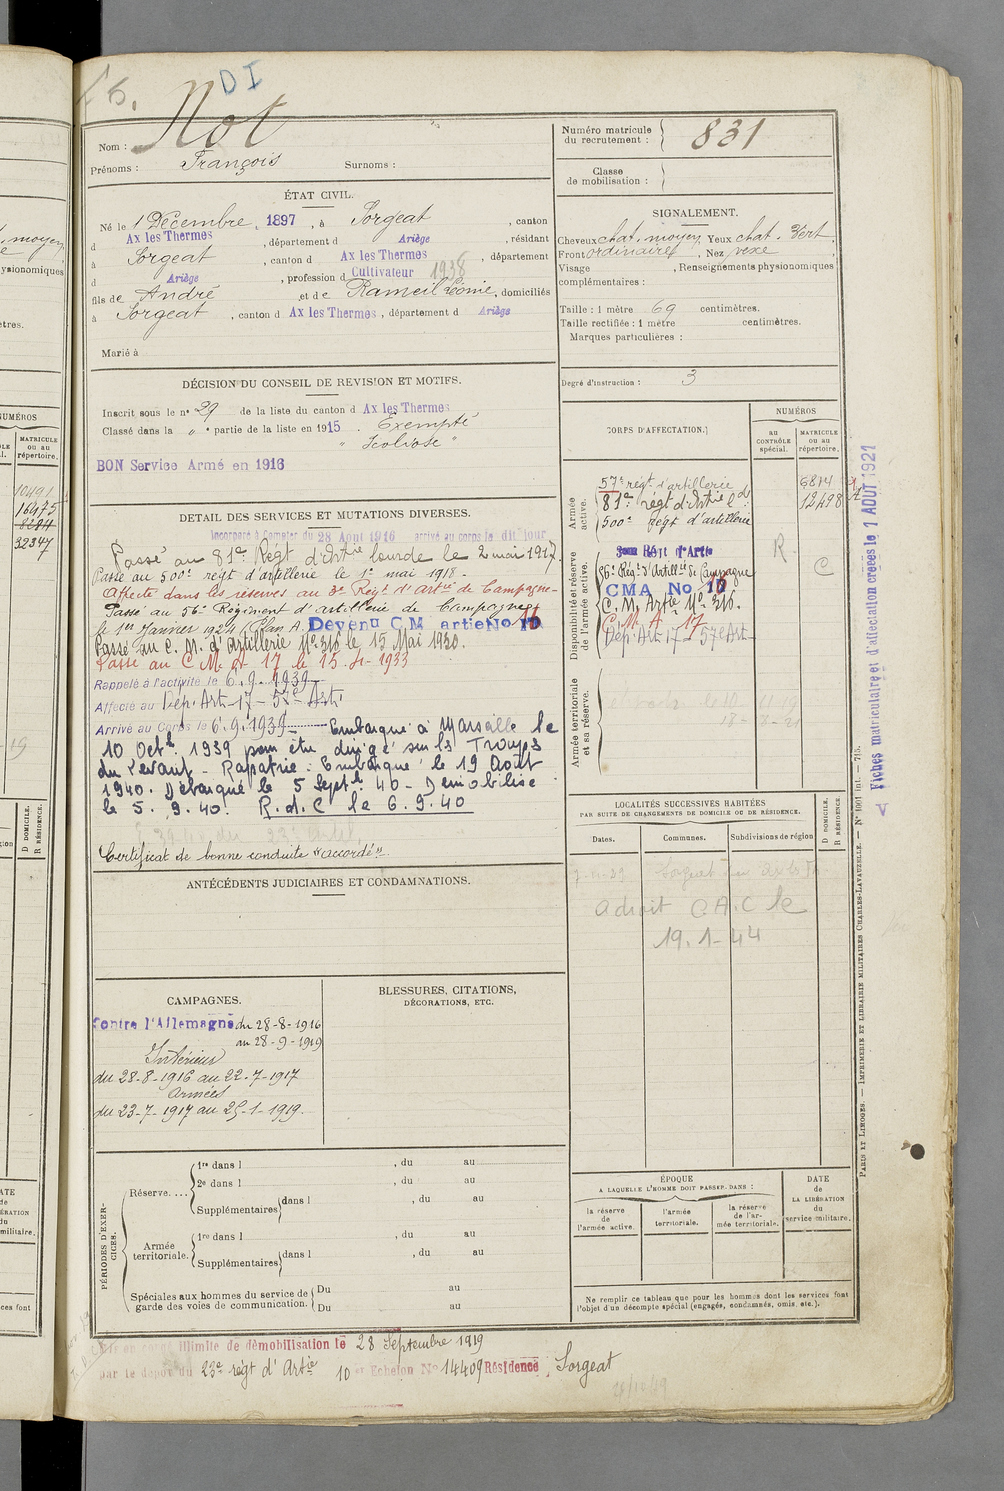 DI
Nom : Not
Prénoms : François Surnoms :
Numéro matricule du recrutement : 831
Classe de mobilisation :
ÉTAT CIVIL.
Né le 1 Décembre, 1897, à Sorgeat, canton
d Ax les Thermes, département d Ariège, résidant
à Sorgeat, canton d Ax les Thermes, département
d Ariège, profession d Cultivateur 1938
fils de André et de Rameil Léonie, domiciliés
à Sorgeat, canton d Ax les Thermes, département d Ariège
Marié à
SIGNALEMENT.
Cheveux chat. moyen, Yeux chat. vert,
Front ordinaire, Nez vexe
Visage , Renseignements physionomiques
complémentaires :
Taille : 1 mètre 69 centimètres.
Taille rectifiée : 1 mètre centimètres.
Marques particulières :
Degré d'instruction : 3
DÉCISION DU CONSEIL DE REVISION ET MOTIFS.
Inscrit sous le n° 29 de la liste du canton d Ax les Thermes
Classé dans la „ e partie de la liste en 1915. Exempté
" Scoliose "
BON Service Armé en 1916
DETAIL DES SERVICES ET MUTATIONS DIVERSES.
Incorporé à compter du 28 Août 1916 arrivé au corps le dit jour
Passé au 81e Régt d'Artie lourde le 2 mai 1917.
Passé au 500e régt d'artillerie le 1er mai 1918.
Affecté dans les réserves au 3e Régt d'artie de Campagne
Passé au 56e Régiment d'artillerie de Campagne
le 1er Janvier 1924 (Plan A. Devenu C M artie No 16
Passé au C. M. d'Artillerie No 316 le 15 Mai 1930.
Passé au C M A 17 le 15-4-1933
Rappelé à l'activité le 6.9.1939
Affecté au Dép. Art-17-57e Art.
Arrivé au Corps le 6.9.1939 Embarqué à Marseille le
10 Octe 1939 pour être dirigé sur les Troupes
du Levant - Rapatrié. Embarqué le 19 Août
1940. Débarqué le 5 Sept. 40 - Démobilisé
le 5. 9. 40. R.d.C le 6.9.40
Certificat de bonne conduite "accordé".
CORPS D'AFFECTATION.
NUMÉROS
au CONTRÔLE spécial.
MATRICULE ou au répertoire.
Armée active.
57e régt d'artillerie 6814
81e régt d'Artie ld 12498
500e régt d'artillerie
Disponibilité et réserve de l'armée active.
3eme Régt d'Artie R
56e Régt d'Artillie de Campagne C
CMA No 16
C. M. Artie No 316.
C. M. A 17
Dép. Art 17 - 57e Art
Armée territoriale et sa réserve.
LOCALITÉS SUCCESSIVES HABITÉES
PAR SUITE DE CHANGEMENTS DE DOMICILE OU DE RÉSIDENCE.
Dates. Communes. Subdivisions de région
D DOMICILE. R RÉSIDENCE.
Adroit C.A.C le
19.1-44
ANTÉCÉDENTS JUDICIAIRES ET CONDAMNATIONS.
CAMPAGNES.
Contre l'Allemagne du 28-8-1916
au 28-9-1919
Intérieur
du 28-8-1916 au 22-7-1917
Armées
du 23-7-1917 au 25-1-1919.
BLESSURES, CITATIONS,
DÉCORATIONS, ETC.
PÉRIODES D'EXERCICES.
Réserve....
1re dans l , du au
2e dans l , du au
Supplémentaires dans l , du au
Armée territoriale.
1re dans l , du au
Supplémentaires dans l , du au
Spéciales aux hommes du service de garde des voies de communication.
Du au
Du au
ÉPOQUE
A LAQUELLE L'HOMME DOIT PASSER DANS :
la réserve de l'armée active.
l'armée territoriale.
la réserve de l'armée territoriale.
DATE de LA LIBÉRATION du service militaire.
Ne remplir ce tableau que pour les hommes dont les services font
l'objet d'un décompte spécial (engagés, condamnés, omis, etc.).
en congé illimité de démobilisation le 28 Septembre 1919
par le dépôt du 23e régt d'Artie 10e Echelon No 14409 Résidence, Sorgeat
Fiches matriculaire et d'affectation créées le 1 AOUT 1921
PARIS ET LIMOGES. — IMPRIMERIE ET LIBRAIRIE MILITAIRES CHARLES-LAVAUZELLE. — N° 1001 int. — 715.
NUMÉROS
MATRICULE ou au répertoire.
10491
16475
8284
32347